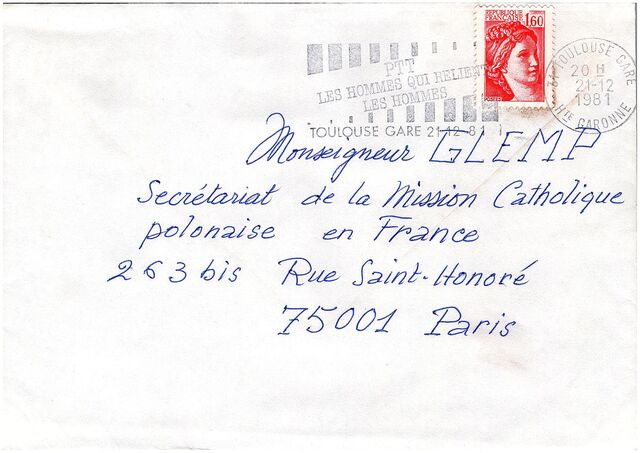 REPUBLIQUE
FRANÇAISE 1,60
POSTES
PTT
LES HOMMES QUI RELIENT
LES HOMMES
TOULOUSE GARE 21-12-81
31 TOULOUSE GARE
20 H
21-12
1981
Hte GARONNE
Monseigneur GLEMP
Secrétariat de la Mission Catholique
polonaise en France
263 bis Rue Saint-Honoré
75001 Paris